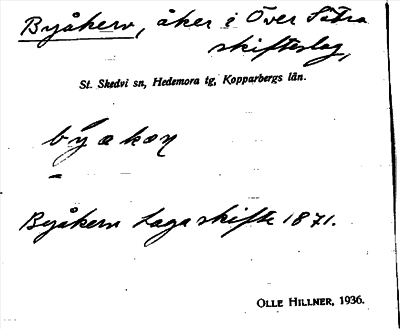 Byåkern, åker i Över Sätra
skifteslag,
St. Skedvi sn, Hedemora tg, Kopparbergs län.
býakaṇ
Byåkern Laga skifte 1871.
OLLE HILLNER, 1936.